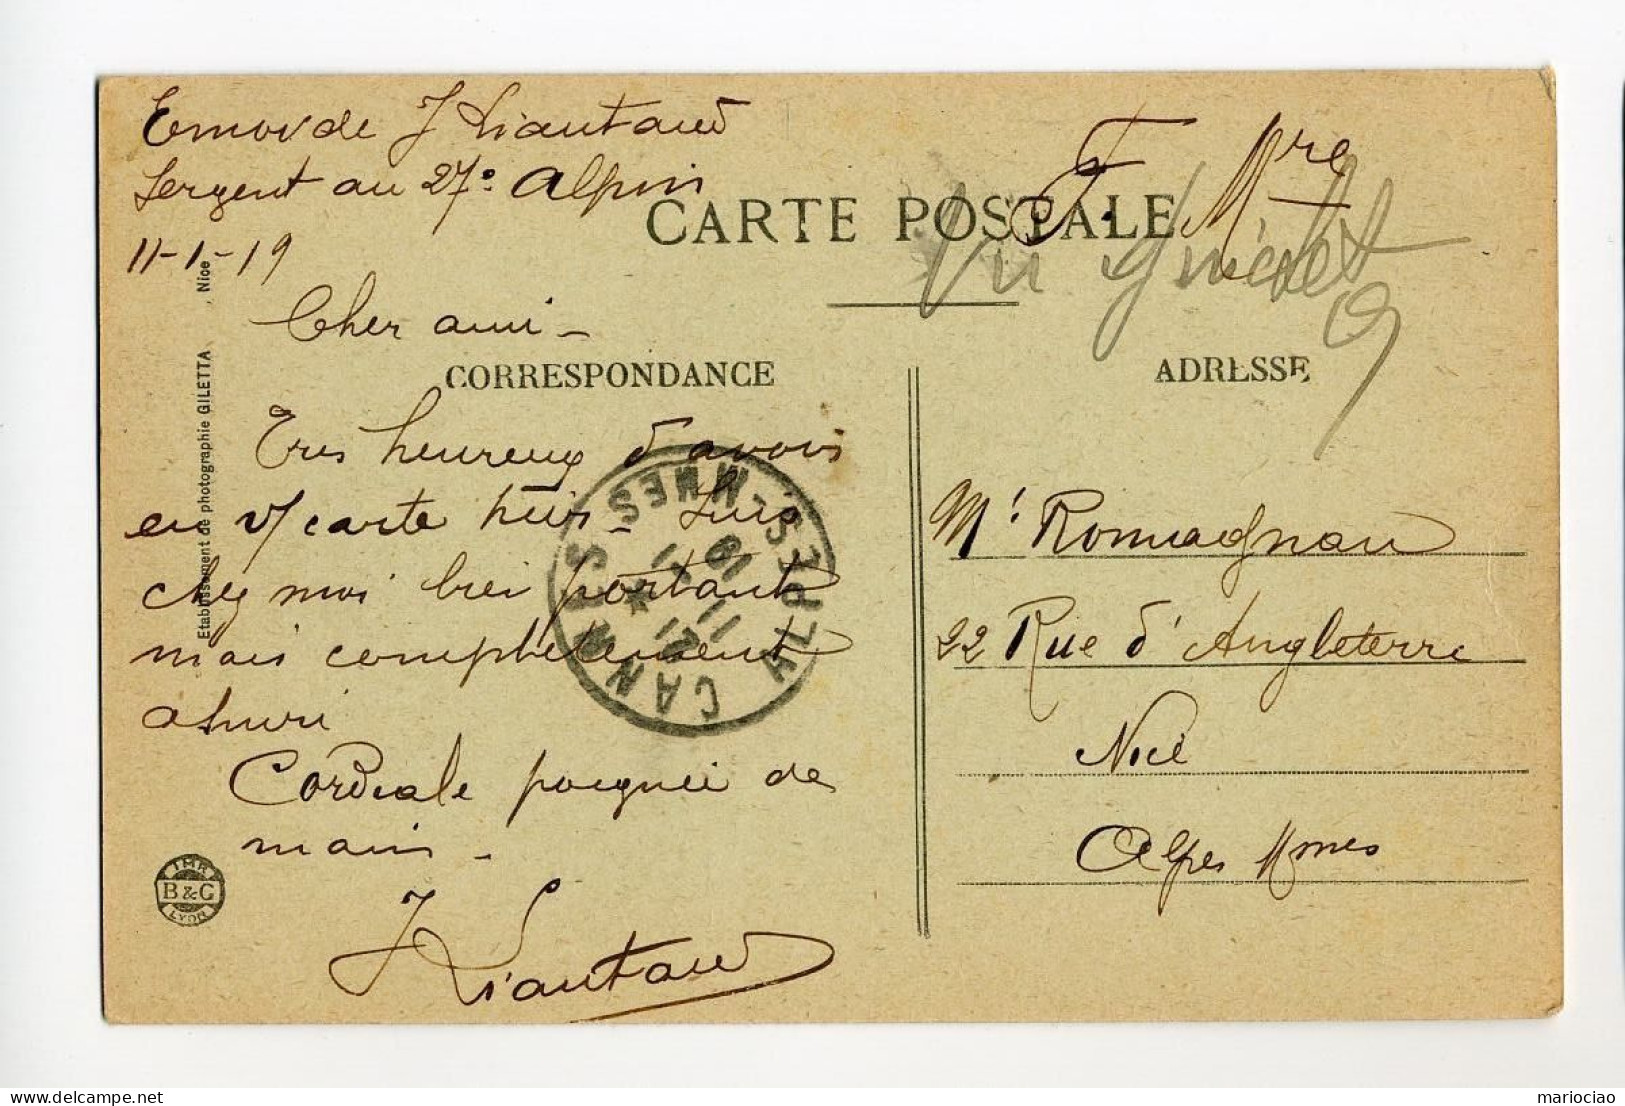 Envoi de J Liautaud
Sergent au 27e Alpin
11-1-19
F. Mre
CARTE POSTALE
Vu
Cher ami -
CORRESPONDANCE
ADRESSE
Très heureux d'avoir
eu v/ carte hier. Suis
chez moi bien portant
mais complètement
ahuri
Cordiale poignée de
main -
J Liautaud
Mr Romagnan
22 Rue d'Angleterre
Nice
Alpes Mmes
Etablissement de photographie GILETTA, Nice
CANNES
ALPES-MMES
11 - 1
19
IMP.
B & G
LYON
mariociao